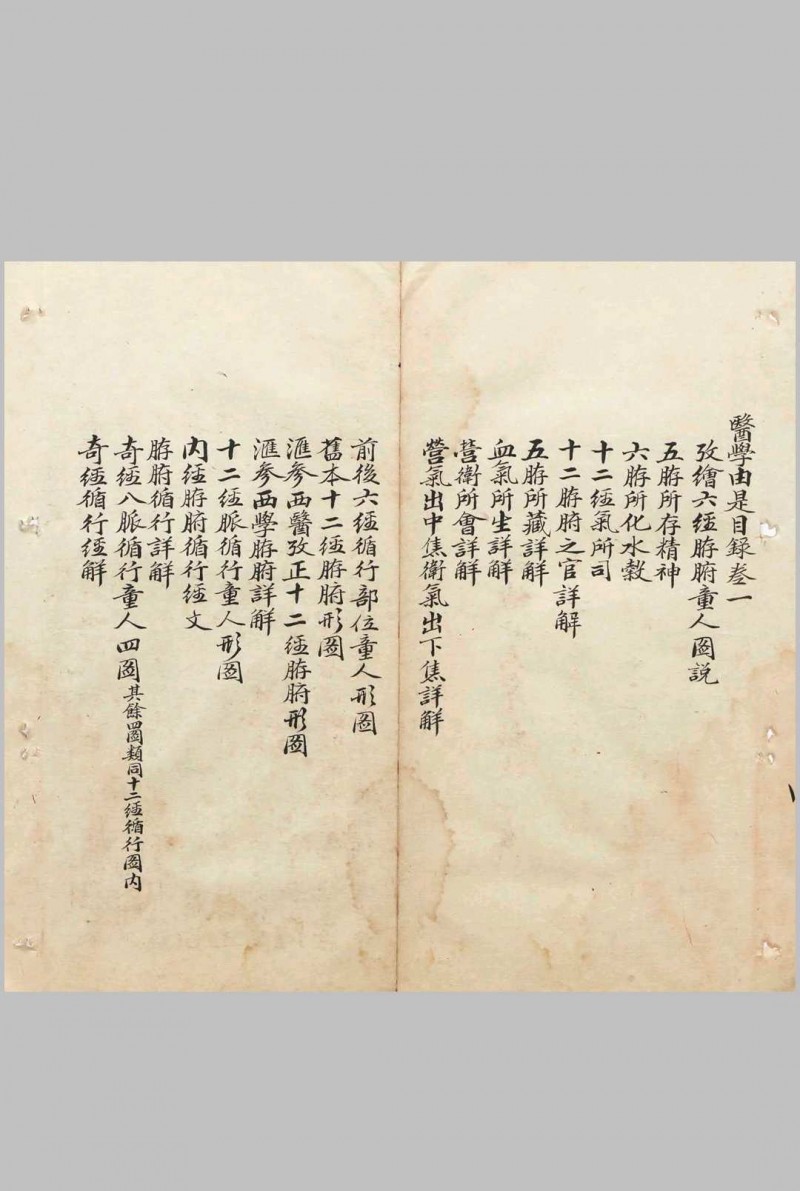 醫學由是目録叁一
攷繪六經臟腑童人圖説
五臟所存精神
六腑所化水穀
十二經氣所司
十二臟腑之官詳解
五臟所藏詳解
血氣所生詳解
營衛所會詳解
營氣出中焦衛氣出下焦詳解
前後六經循行部位童人形圖
舊本十二經臟腑形圖
滙參西醫攷正十二經臟腑形圖
滙參西學臟腑詳解
十二經脈循行童人形圖
内經臟腑循行經文
臟腑循行詳解
奇經八脈循行童人四圖其餘四圖類同十二經循行圖内
奇經循行經解